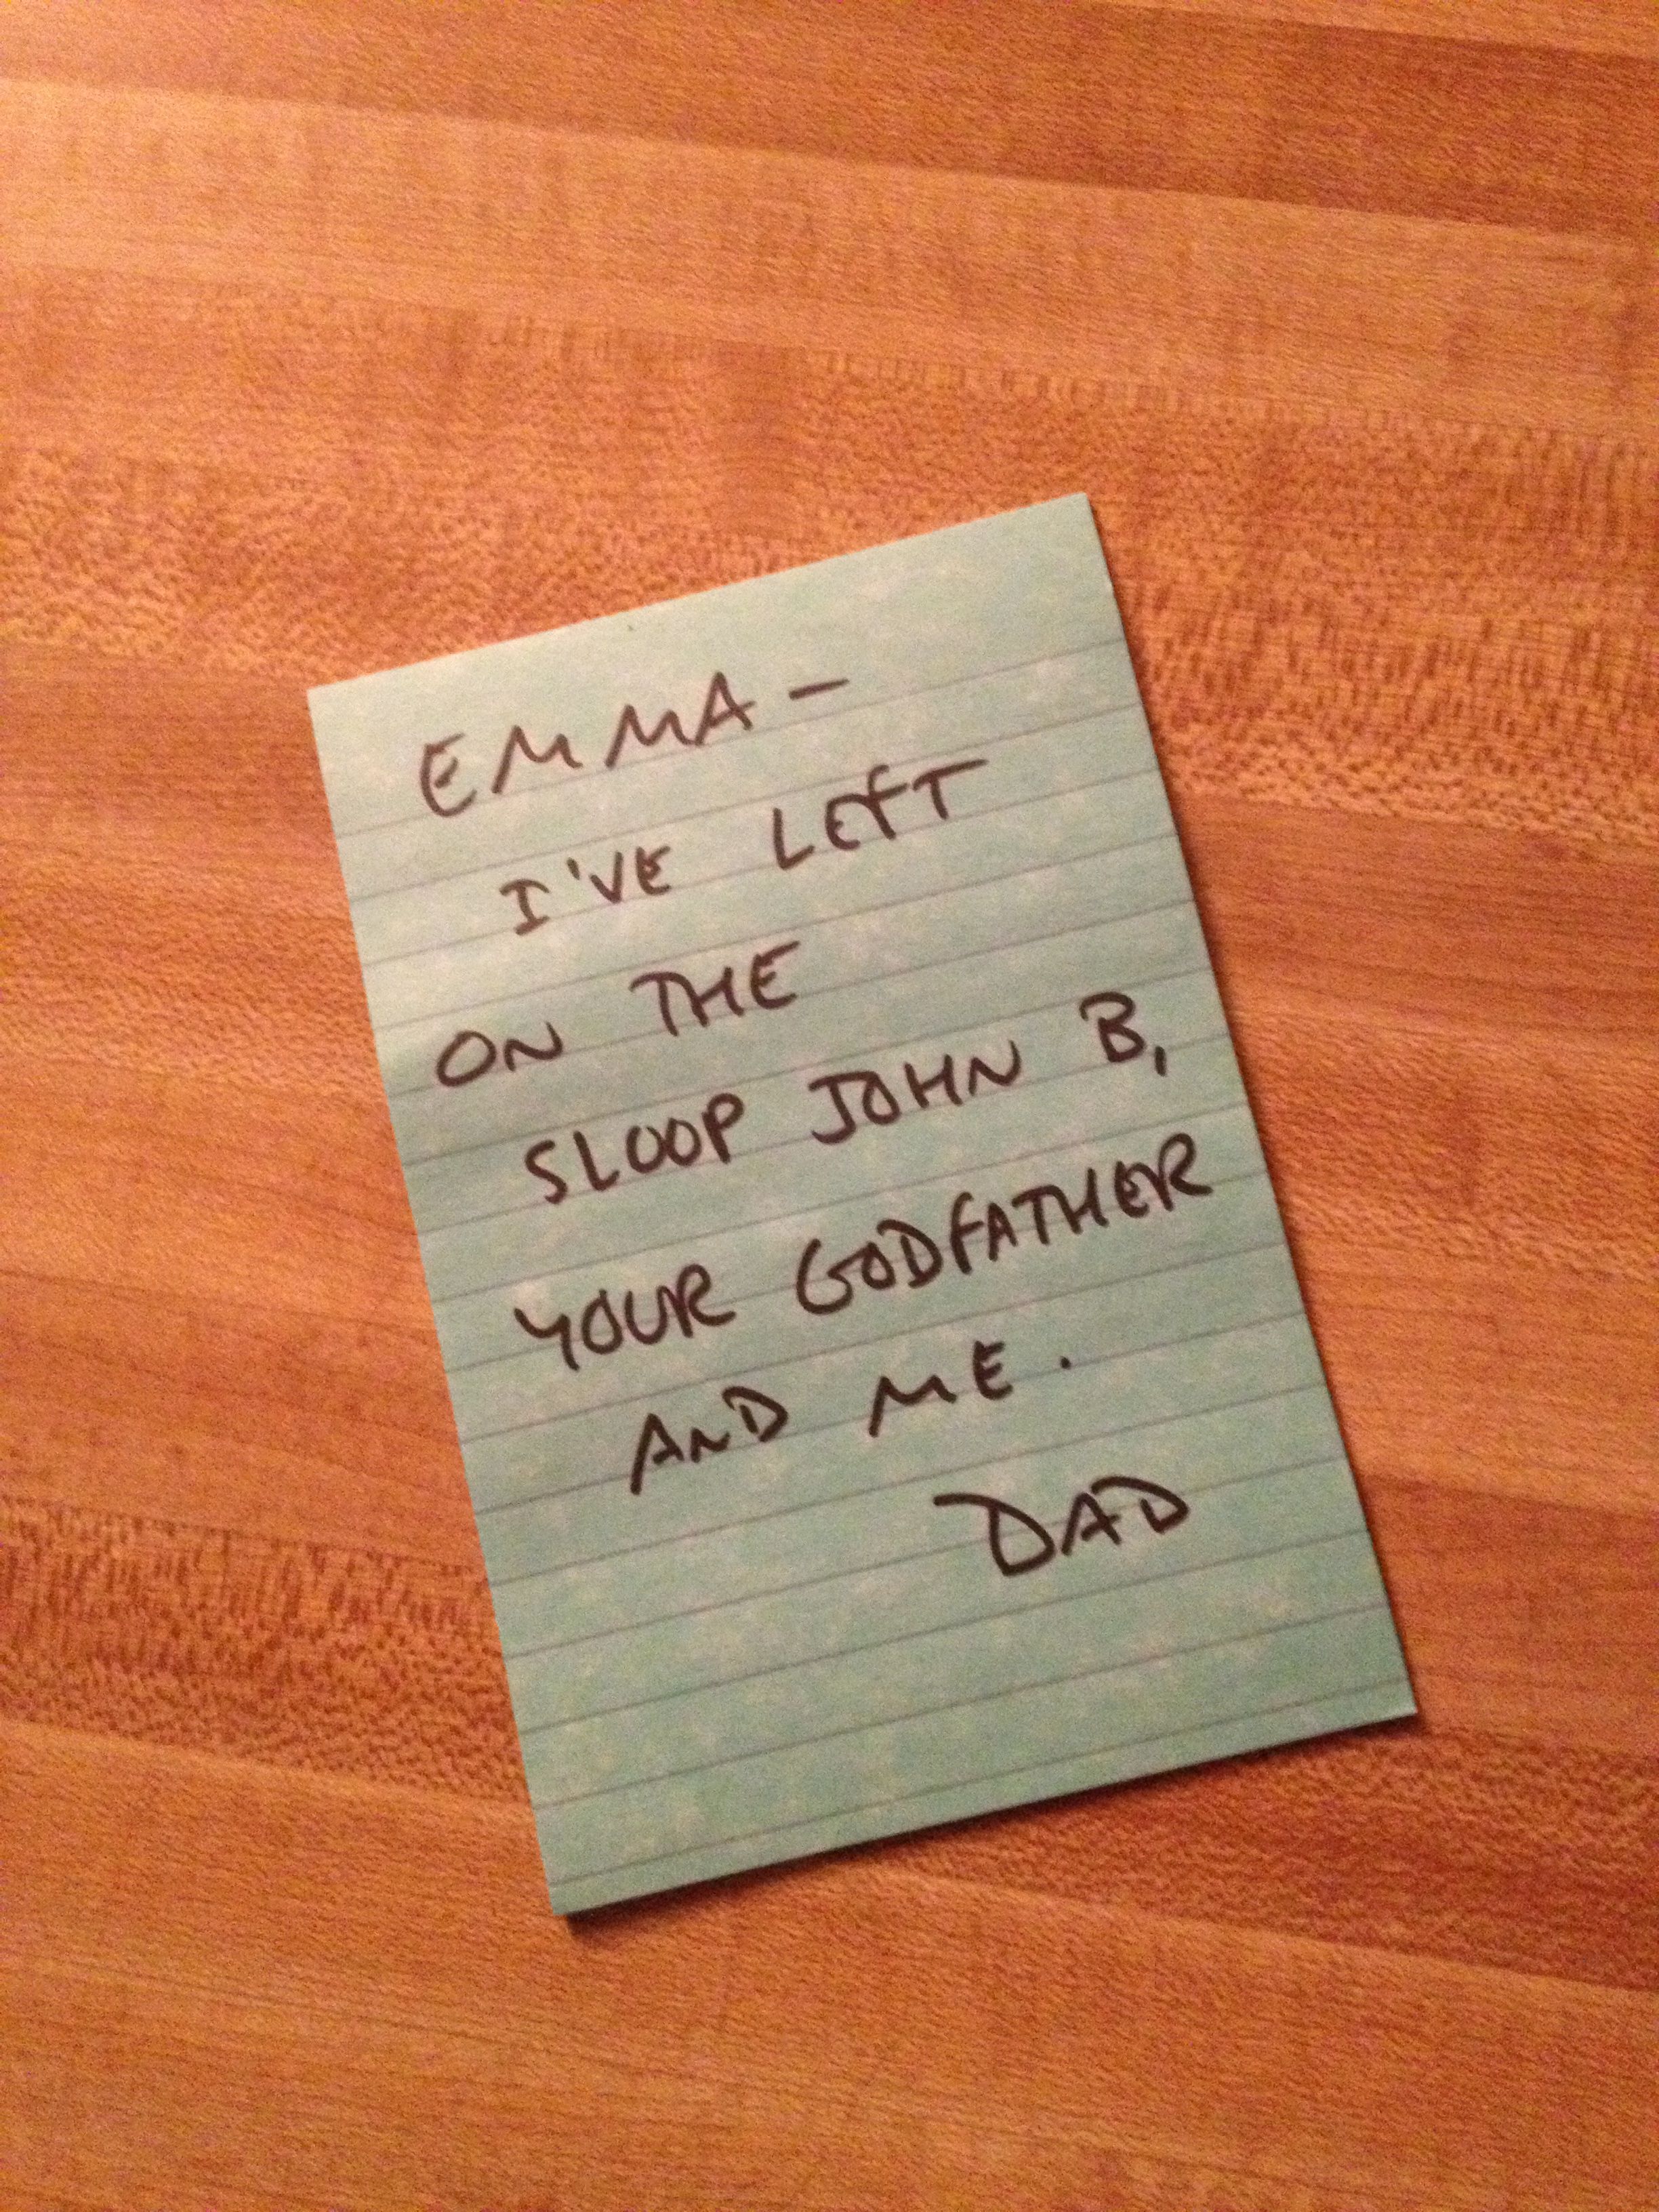 EMMA —
I'VE LEFT
ON THE
SLOOP JOHN B,
YOUR GODFATHER
AND ME.
DAD